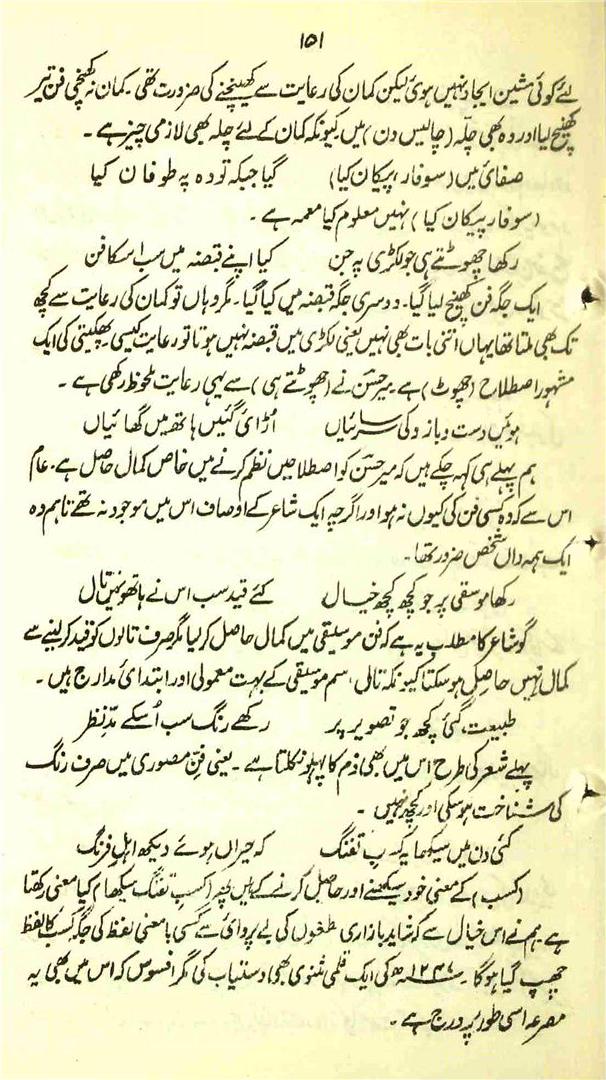 ۱۵۱
لئے کوئی مشین ایجاد نہیں ہوئی لیکن کمان کی رعایت سے کھینچنے کی ضرورت تھی۔ کمان نہ کھنچی فن تیر
کھینچ لیا اور وہ بھی چلّہ (چالیس دن) میں کیونکہ کمان کے لئے چلہ بھی لازمی چیز ہے۔
صفائی میں (سوفار، پیکان کیا) گیا جبکہ تودہ پہ طوفان کیا
(سوفار پیکان کیا) نہیں معلوم کیا معمہ ہے۔
رکھا چھوٹتے ہی جو لکڑی پہ جن کیا اپنے قبضہ میں سب اسکا فن
ایک جگہ فن کھینچ لیا گیا۔ دوسری جگہ قبضہ میں کیا گیا۔ مگر وہاں تو کمان کی رعایت سے کچھ
تک بھی ملتا تھا یہاں اتنی بات بھی نہیں یعنی لکڑی میں قبضہ نہیں ہوتا تو رعایت کیسی۔ پھکیتی کی ایک
مشہور اصطلاح (چھوٹ) ہے میر حسنؔ نے (چھوٹتے ہی) سے یہی رعایت ملحوظ رکھی ہے۔
ہوئیں دست و بازو کی سرسائیاں اُڑائی گئیں ہاتھ میں گھائیاں
ہم پہلے ہی کہہ چکے ہیں کہ میر حسنؔ کو اصطلاحیں نظم کرنے میں خاص کمال حاصل ہے۔ عام
اس سے کہ وہ کسی فن کی کیوں نہ ہو اور اگرچہ ایک شاعر کے اوصاف اس میں موجود نہ تھے تاہم وہ
ایک ہمہ داں شخص ضرور تھا۔
رکھا موسقی پر جو کچھ کچھ خیال کئے قید سب اس نے ہاتھوں نیں تال
گو شاعر کا مطلب یہ ہے کہ فن موسیقی میں کمال حاصل کر لیا مگر صرف تالوں کو قید کر لینے سے
کمال نہیں حاصل ہو سکتا کیونکہ تال، سم موسیقی کے بہت معمولی اور ابتدائی مدارج ہیں۔
طبیعت گئی کچھ جو تصویر پر رکھے رنگ سب اُسکے مدِّ نظر
پہلے شعر کی طرح اس میں بھی ذم کا پہلو نکلتا ہے۔ یعنی فن مصوری میں صرف رنگ
کی شناخت ہو سکی اور کچھ نہیں۔
کئی دن میں سیکھا یہ کسب تفنگ کہ حیراں ہوئے دیکھ اہلِ فرنگ
(کسب) کے معنی خود سیکھنے اور حاصل کرنے کے ہیں پھر (کسب تفنگ سیکھا) کیا معنی رکھتا
ہے ہم نے اس خیال سے کہ شاید بازاری طبعوں کی بے پروائی سے کسی با معنی لفظ کی جگہ کسب کا لفظ
چھپ گیا ہوگا۔ ۱۲۴۷ھ کی ایک قلمی مثنوی بھی دستیاب کی مگر افسوس کہ اس میں بھی یہ
مصرعہ اسی طور پر درج ہے۔